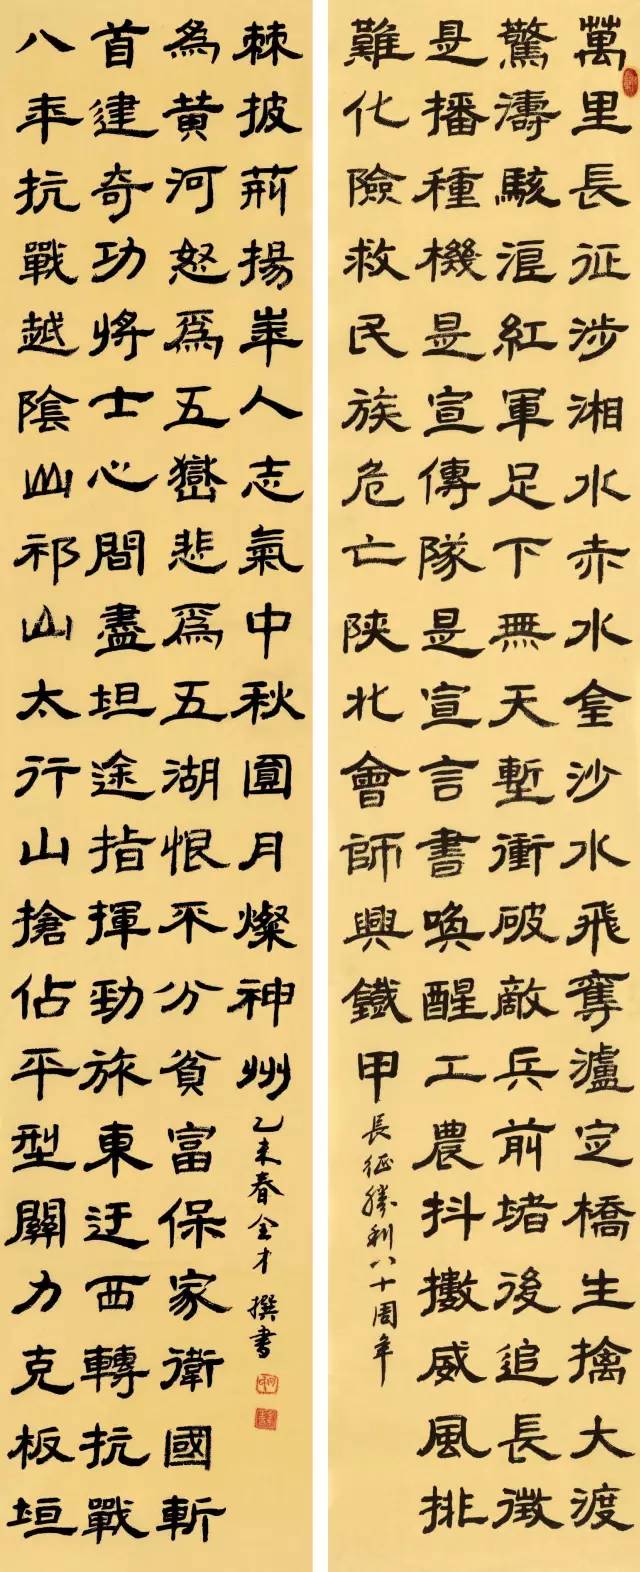 萬里長征涉湘水赤水金沙水飛奪瀘定橋生擒大渡
驚濤駭浪紅軍足下無天塹衝破敵兵前堵後追長徵
是播種機是宣傳隊是宣言書喚醒工農抖擻威風排
難化險救民族危亡陝北會師興鐵甲
長征勝利八十周年
八年抗戰越陰山祁山太行山搶佔平型關力克板垣
首建奇功將士心間盡坦途指揮勁旅東迂西轉抗戰
為黃河怒爲五嶽悲爲五湖恨平分貧富保家衛國斬
棘披荊揚華人志氣中秋圓月燦神州
乙未春全才撰書